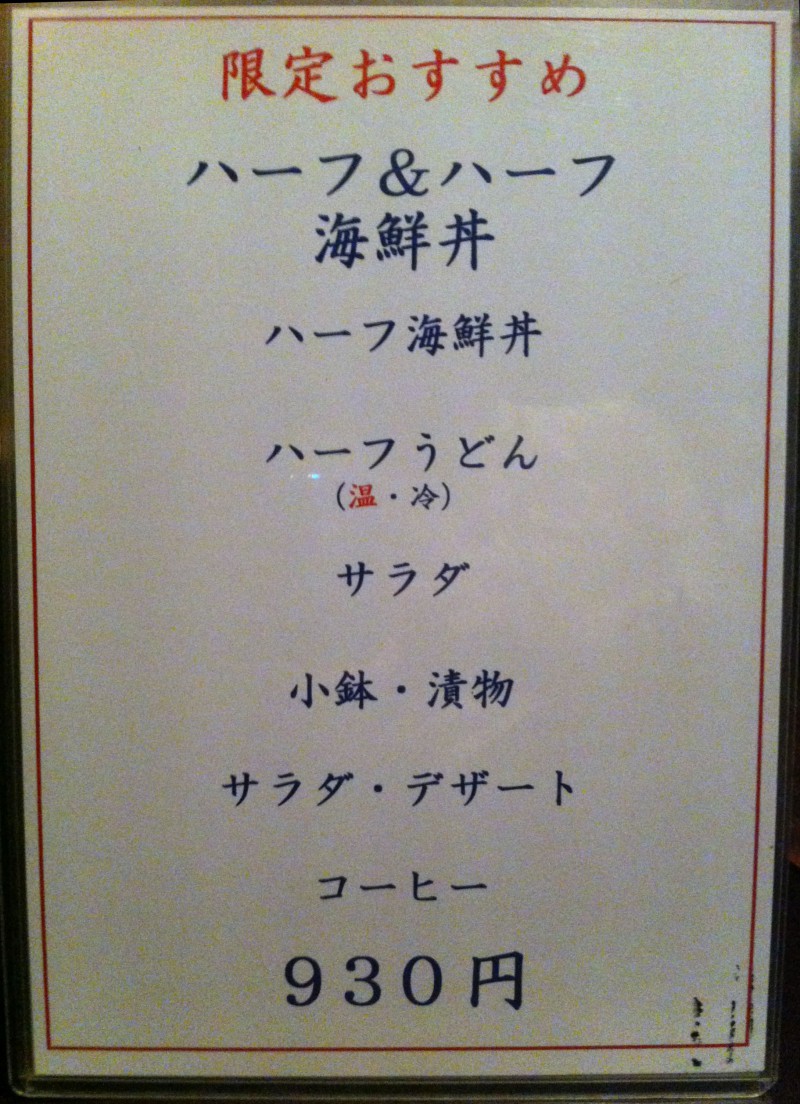 限定おすすめ
ハーフ＆ハーフ
海鮮丼
ハーフ海鮮丼
ハーフうどん
（温・冷）
サラダ
小鉢・漬物
サラダ・デザート
コーヒー
９３０円